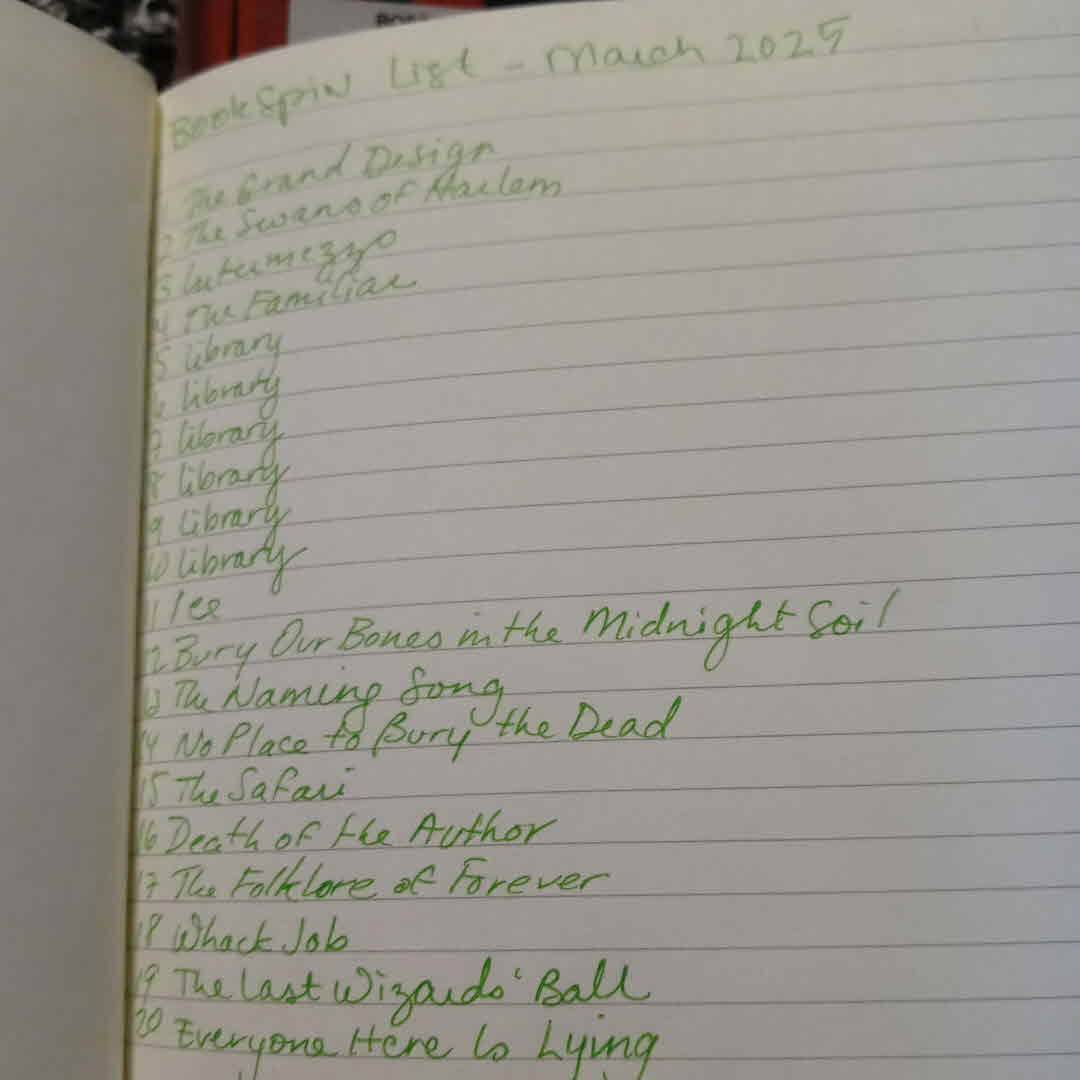 BookSpin List - March 2025
The Grand Design
2 The Swans of Harlem
3 Intermezzo
4 The Familiar
5 library
6 library
7 library
8 library
9 library
10 library
11 Ice
12 Bury Our Bones in the Midnight Soil
13 The Naming Song
14 No Place to Bury the Dead
15 The Safari
16 Death of the Author
17 The Folklore of Forever
18 Whack Job
19 The Last Wizards' Ball
20 Everyone Here Is Lying